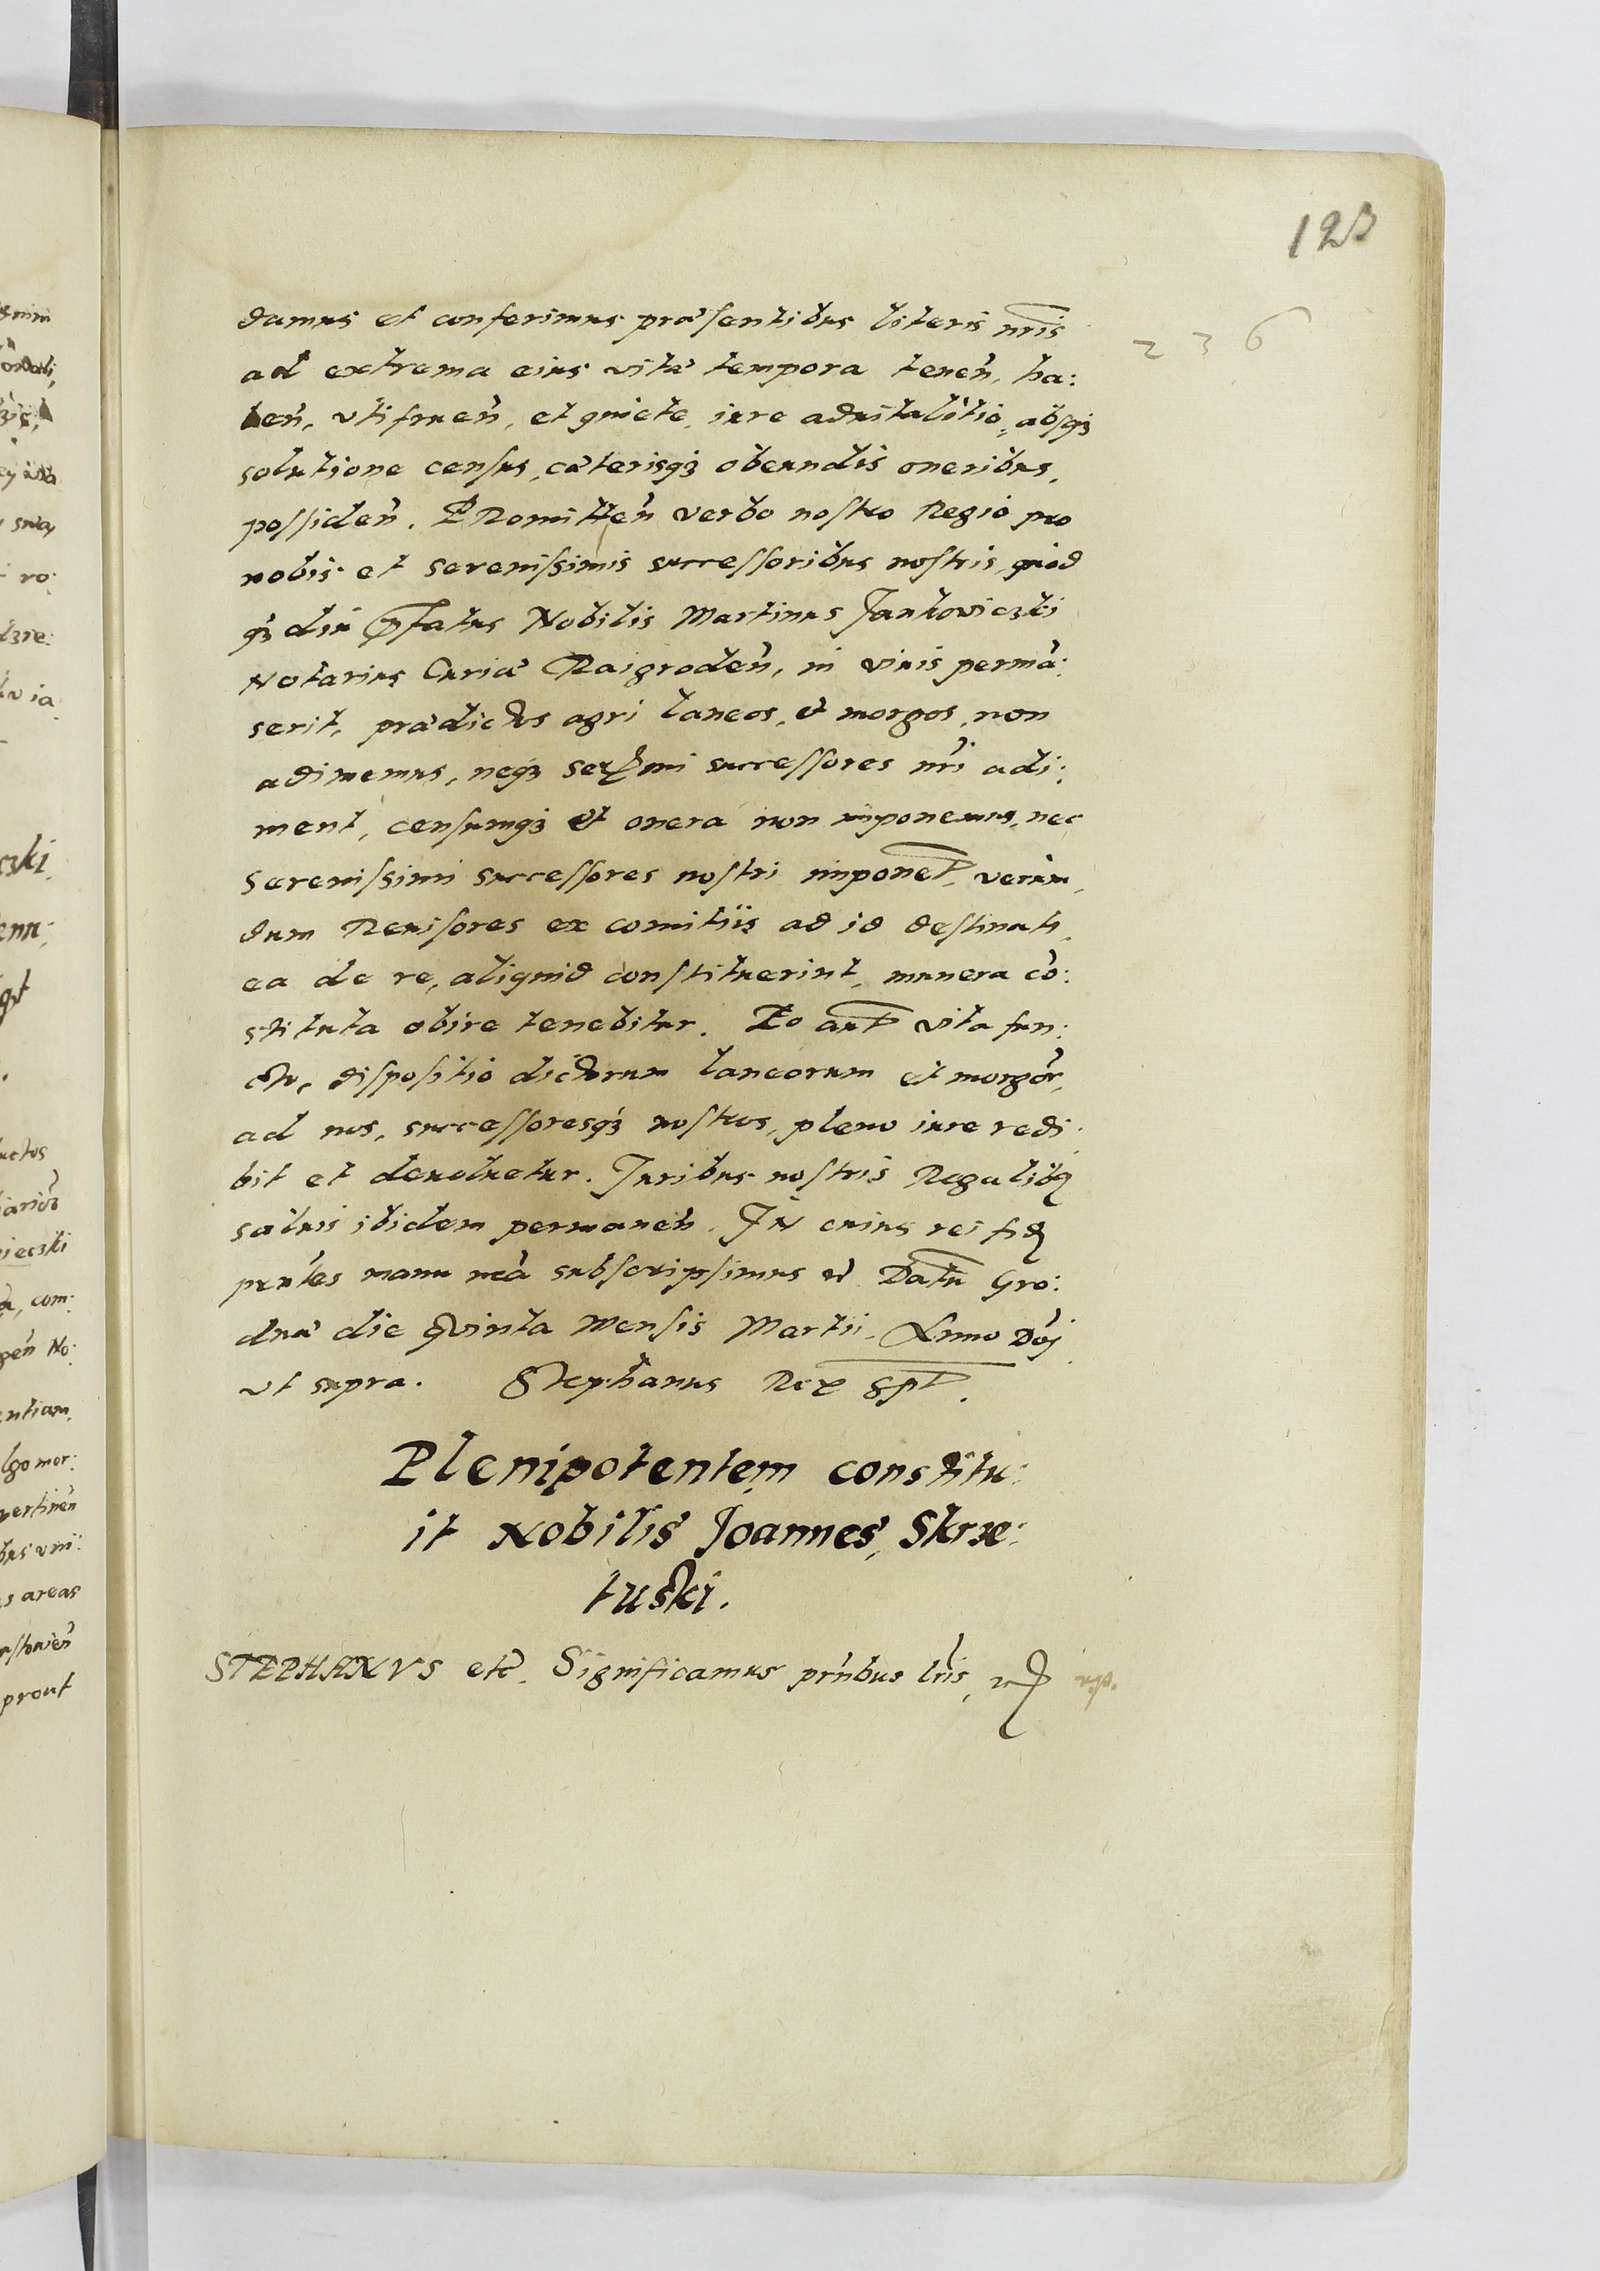 123
236
damus et conferimus præsentibus literis nrıs
ad extrema eius vitæ tempora tenen̄, ha:
ben̄, vtifruen̄, et quiete, iure aduitalitio, absqȝ
solutione census, cæterisqȝ obeundis oneribus,
possiden̄. PRomitten̄ verbo nostro Regio pro
nobis et serenissimis successoribus nostris, quod
qȝdiu pfatus Nobilis Martinus Jankoviczki
Notarius Curiæ Raigroden̄, in viuis permā:
serit, prædictos agri laneos, et morgos, non
adimemus, neqȝ serxmi successores nr̄i adi:
ment, censumqȝ et onera non imponemus, nec
serenissimi successores nostri imponet, verùm,
dum Reuisores ex comitiis ad id destinati,
ea de re, aliquid constituerint, munera cō:
stituta obire tenebitur. Eo aut vita fun:
cto, dispositio dictorum laneorum et morgor̄,
ad nos, successoresqȝ nostros, pleno iure redi:
bit et deuoluetur. Juribus nostris Regalibq
saluis ibidem permanen̄. IN cuius rei fid
prntes manu nr̄a subscripsimus et Datū Gro:
dnæ die Qvinta Mensis Martii. Anno Dn̄j
vt supra. Stephanus Rex sspt.
Plenipotentem constitu:
it Nobilis Joannes, Skrze:
tuski.
STEPHANVS etc̄. Significamus prn̄bus lr̄is,